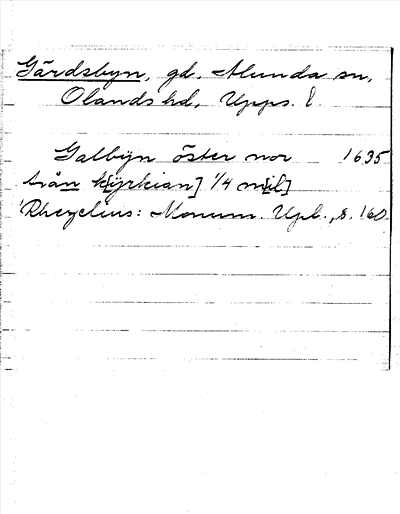 Gärdsbyn, gd. Alunda sn,
Olands hd, Upps. l.
Galbÿn öster nor 1635
från k[ÿrkian] 1/4 m[il]
Rhezelius: Monum. Upl., s. 160.